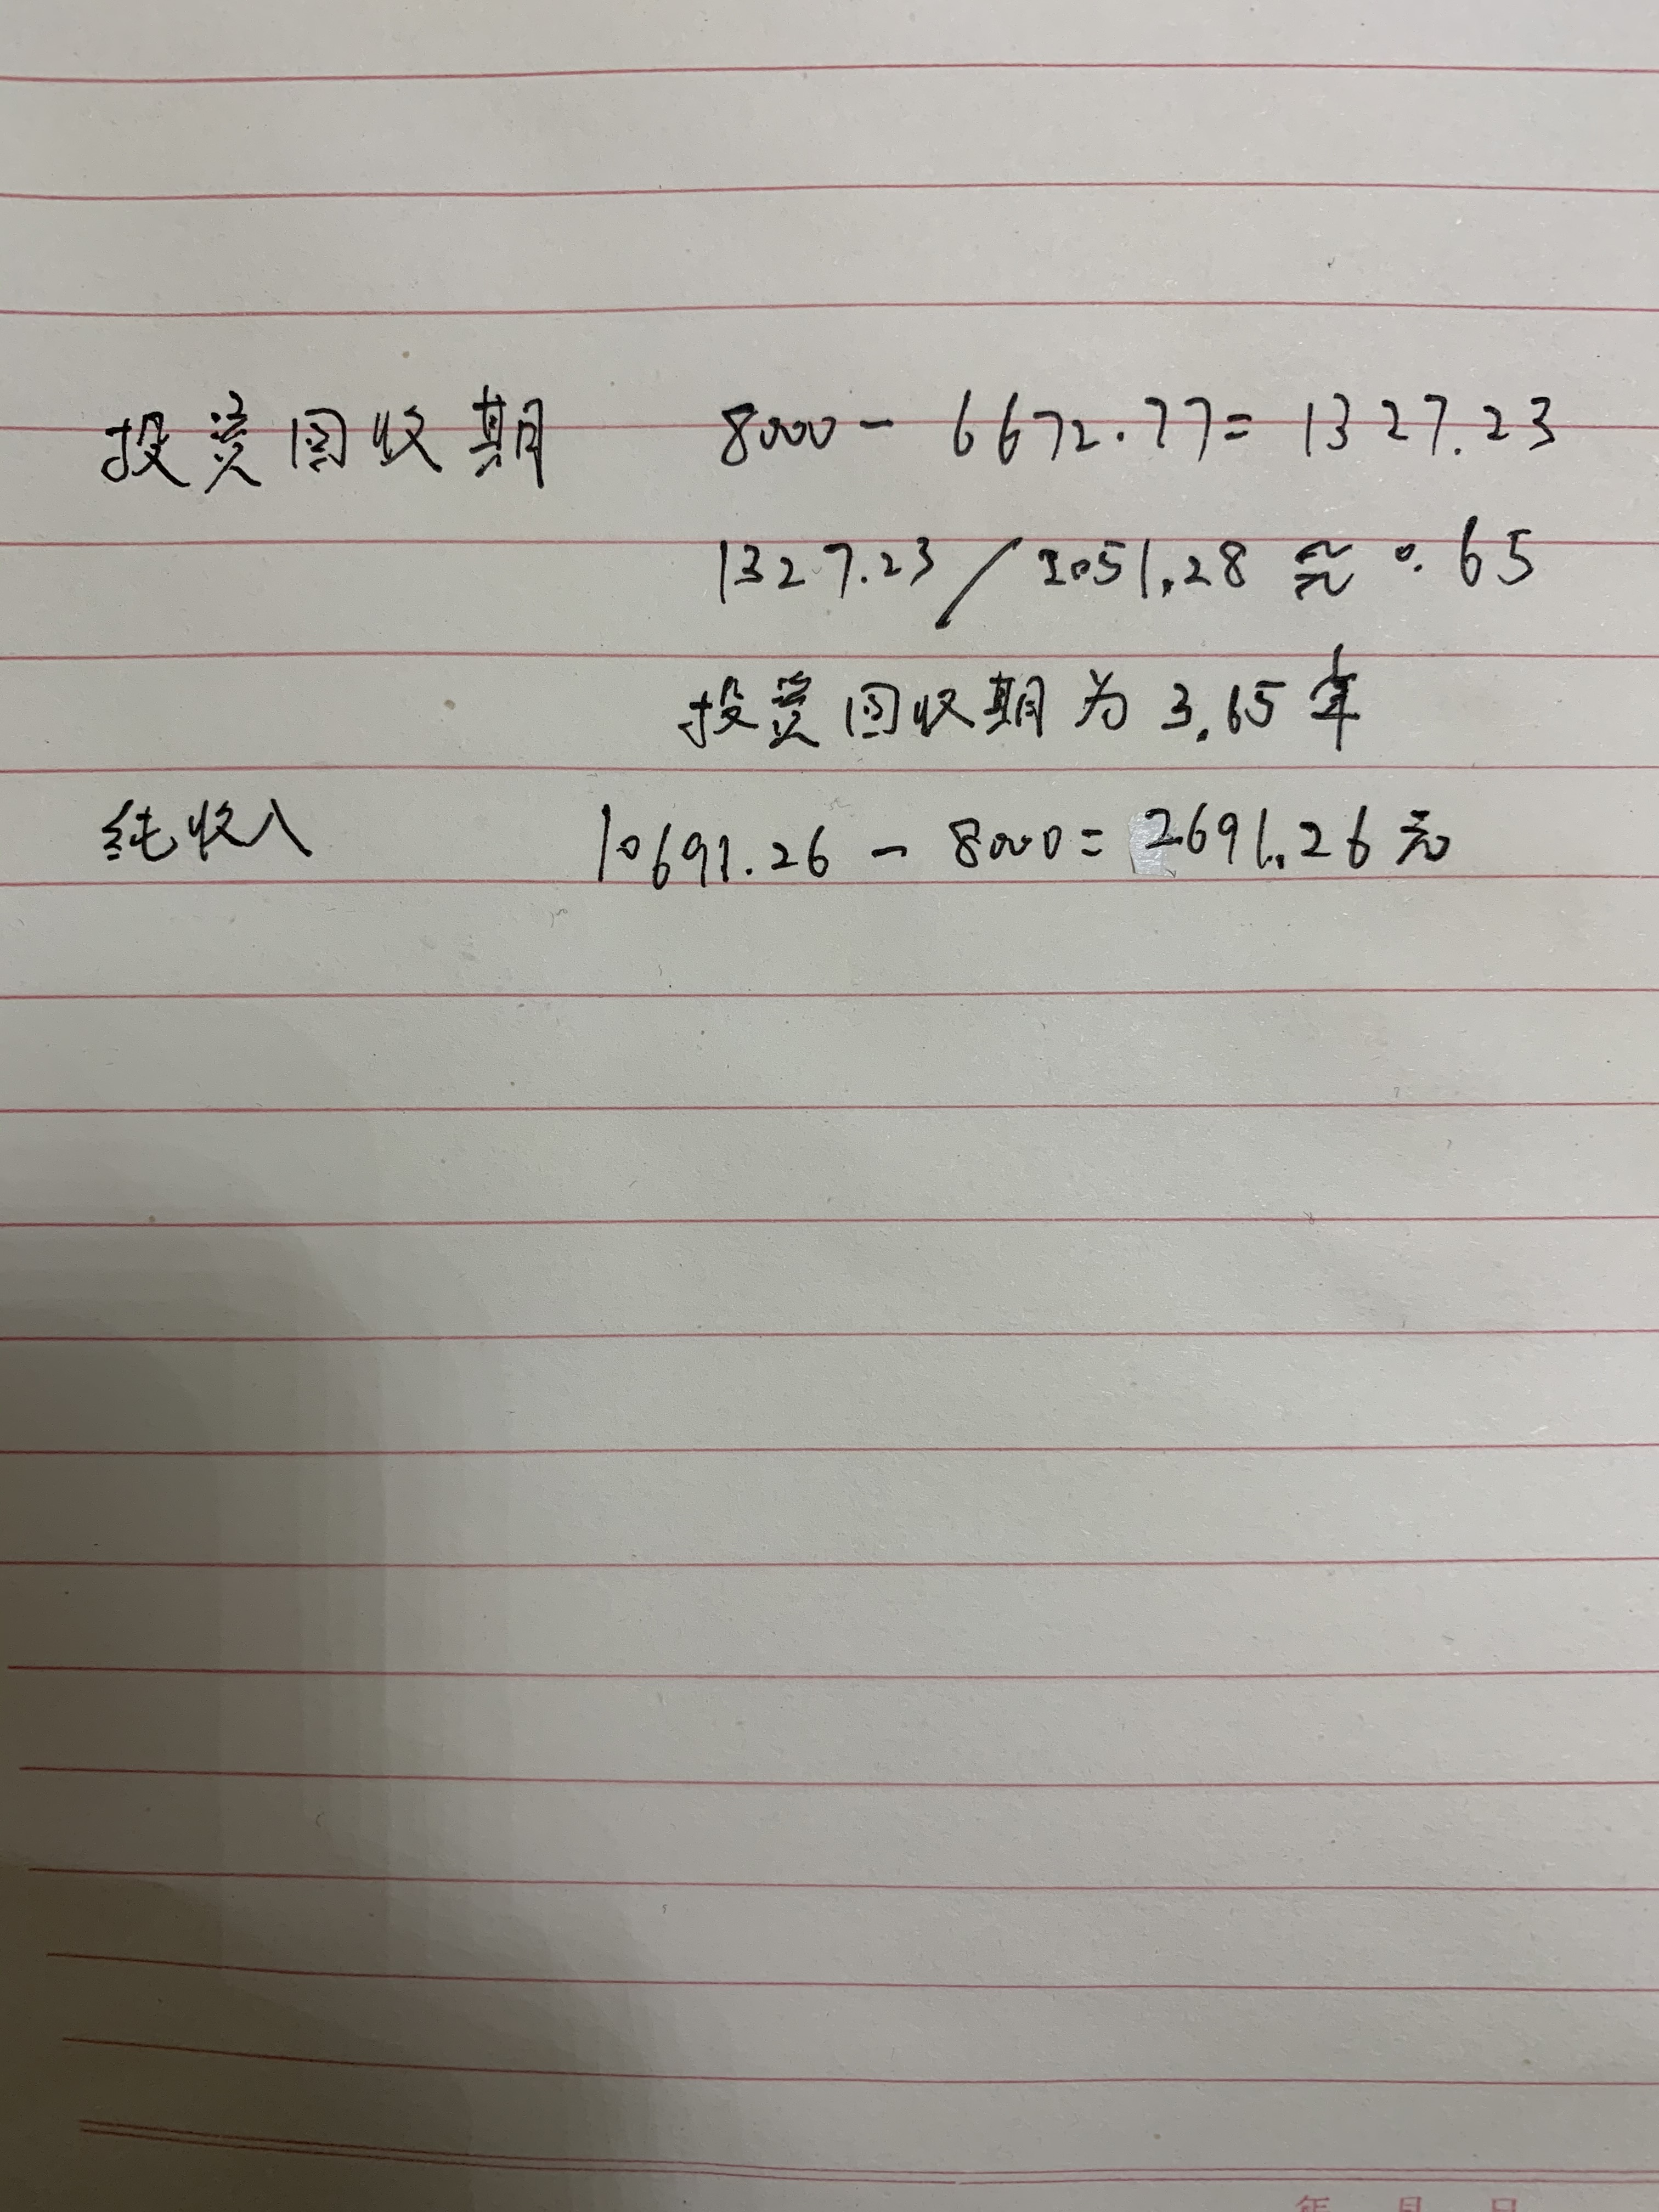 投资回收期 8000 - 6672.77 = 1327.23
1327.23 / 2051.28 ≈ 0.65
投资回收期为 3.65 年
纯收入 10691.26 - 8000 = 2691.26 元
年 月 日